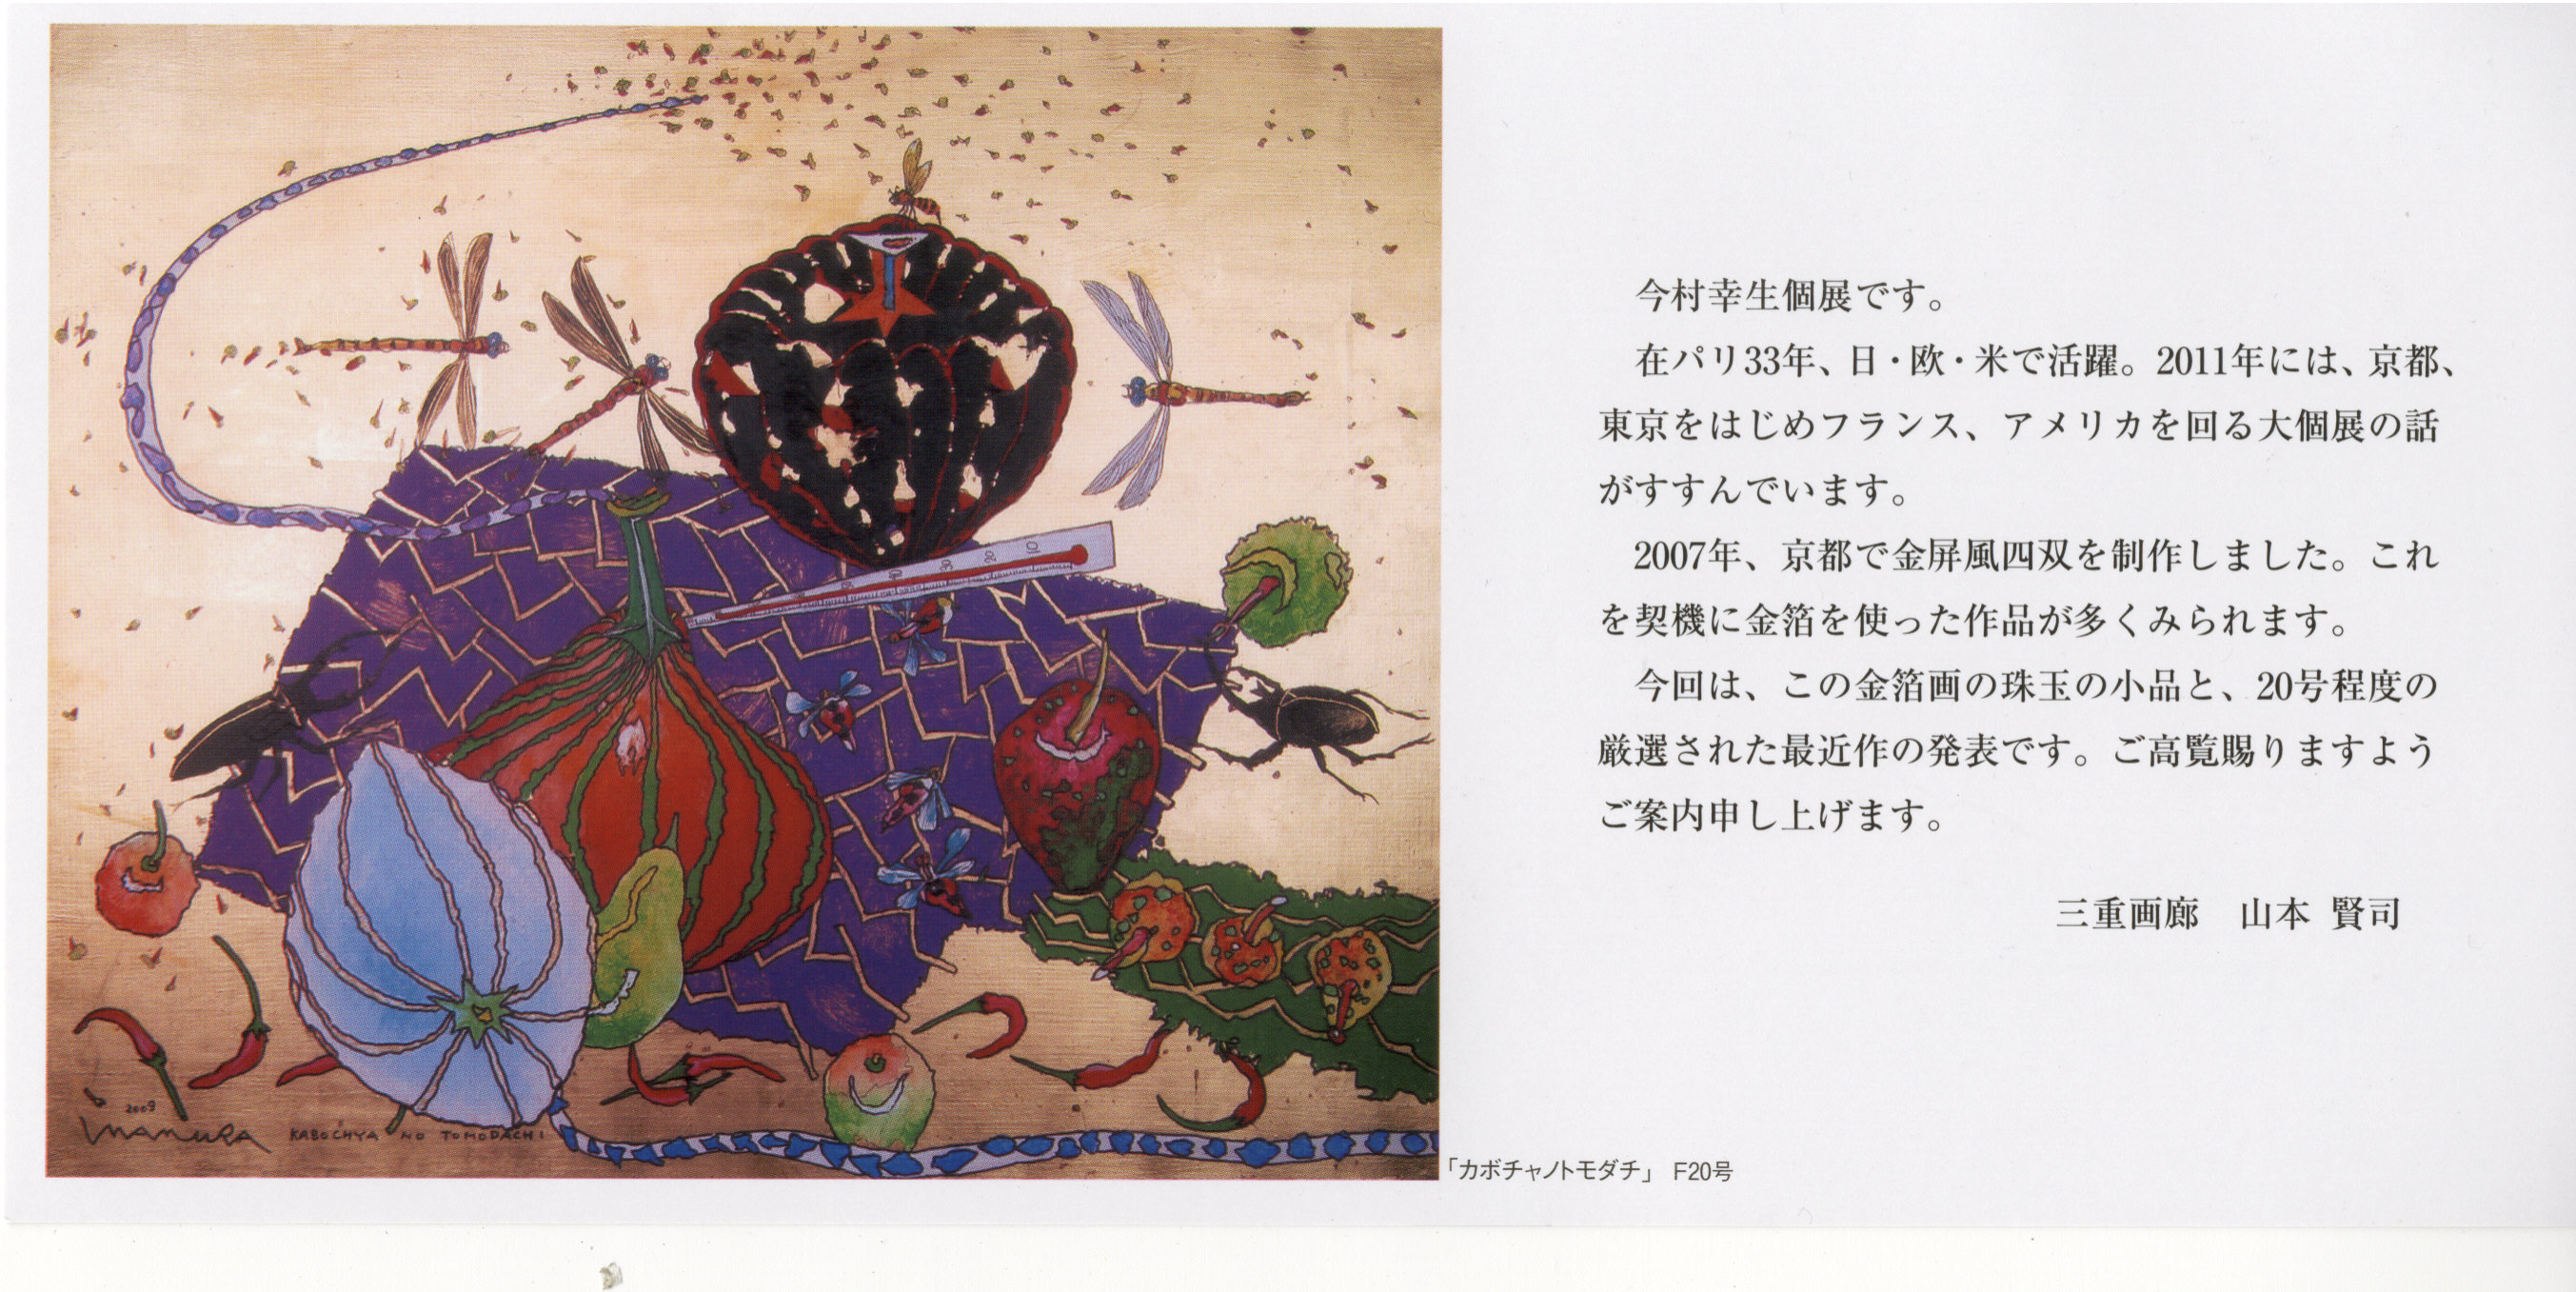 今村幸生個展です。
在パリ33年、日・欧・米で活躍。2011年には、京都、
東京をはじめフランス、アメリカを回る大個展の話
がすすんでいます。
2007年、京都で金屏風四双を制作しました。これ
を契機に金箔を使った作品が多くみられます。
今回は、この金箔画の珠玉の小品と、20号程度の
厳選された最近作の発表です。ご高覧賜りますよう
ご案内申し上げます。
三重画廊　山本 賢司
40 30 20 10
2009
imamuRA KABOCHYA NO TOMODACHI
「カボチャノトモダチ」 F20号